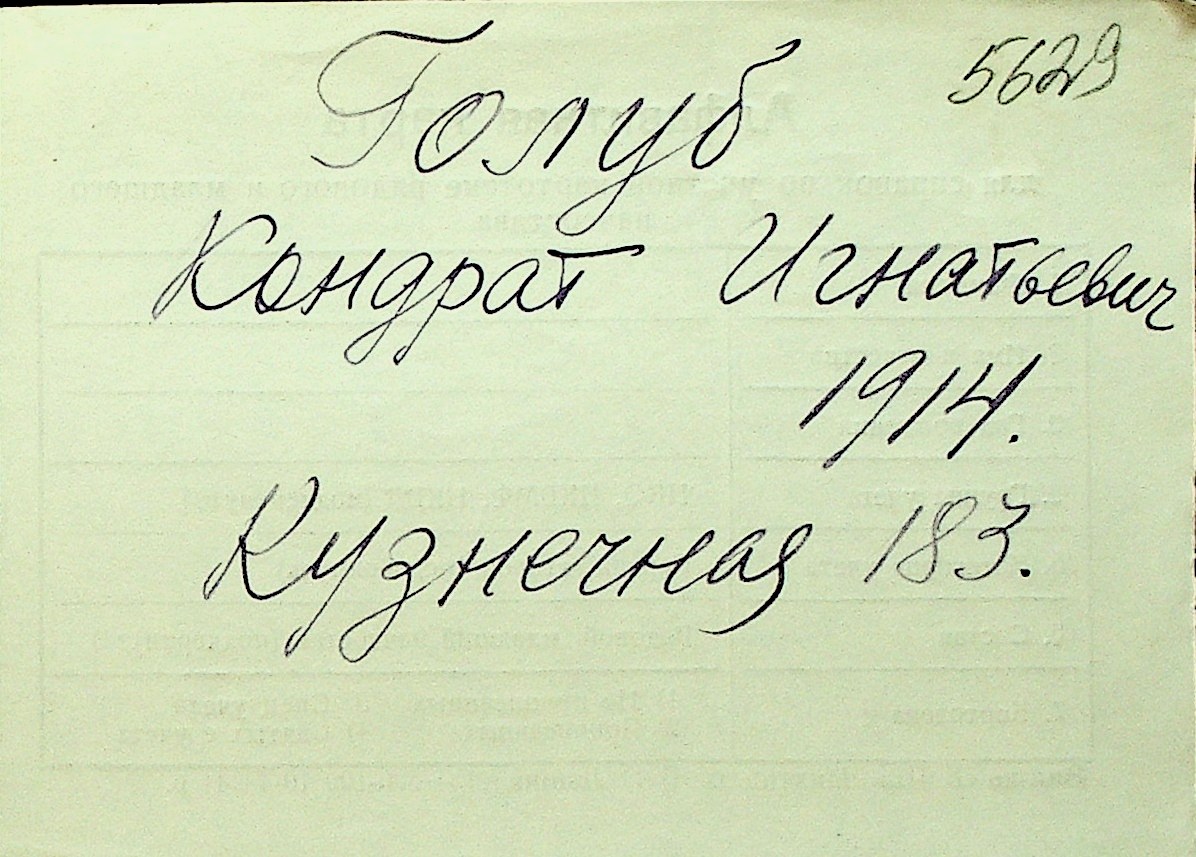 5629
Голуб
Кондрат Игнатьевич
1914.
Кузнечная 183.